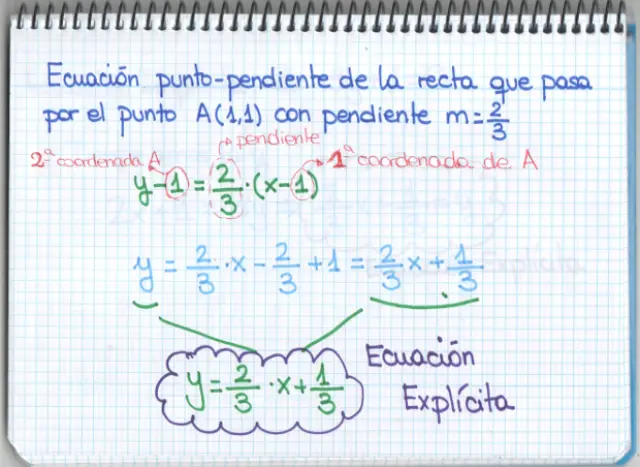 Ecuación punto-pendiente de la recta que pasa
por el punto A(1,1) con pendiente m=2/3
pendiente
2ª coordenada A
1ª coordenada de A
y-1=2/3·(x-1)
y=2/3·x-2/3+1=2/3x+1/3
y=2/3·x+1/3
Ecuación
Explícita